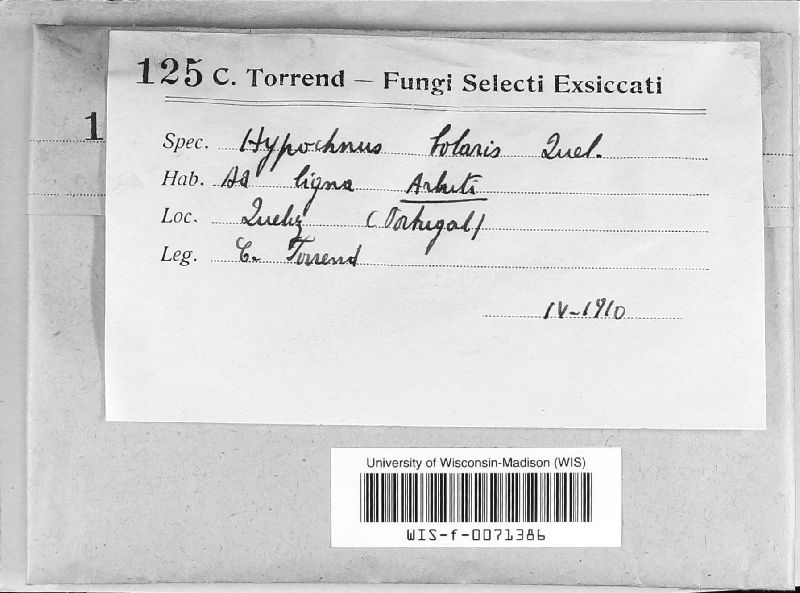 125 C. Torrend — Fungi Selecti Exsiccati
1
Spec. Hypochnus bolaris Quel.
Hab. Ad ligna Arbuti
Loc. (Portugal)
Leg. C. Torrend
IV-1910
University of Wisconsin-Madison (WIS)
WIS-f-0071386